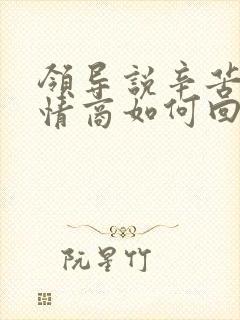 領导説辛苦
情商如何回
阮星竹